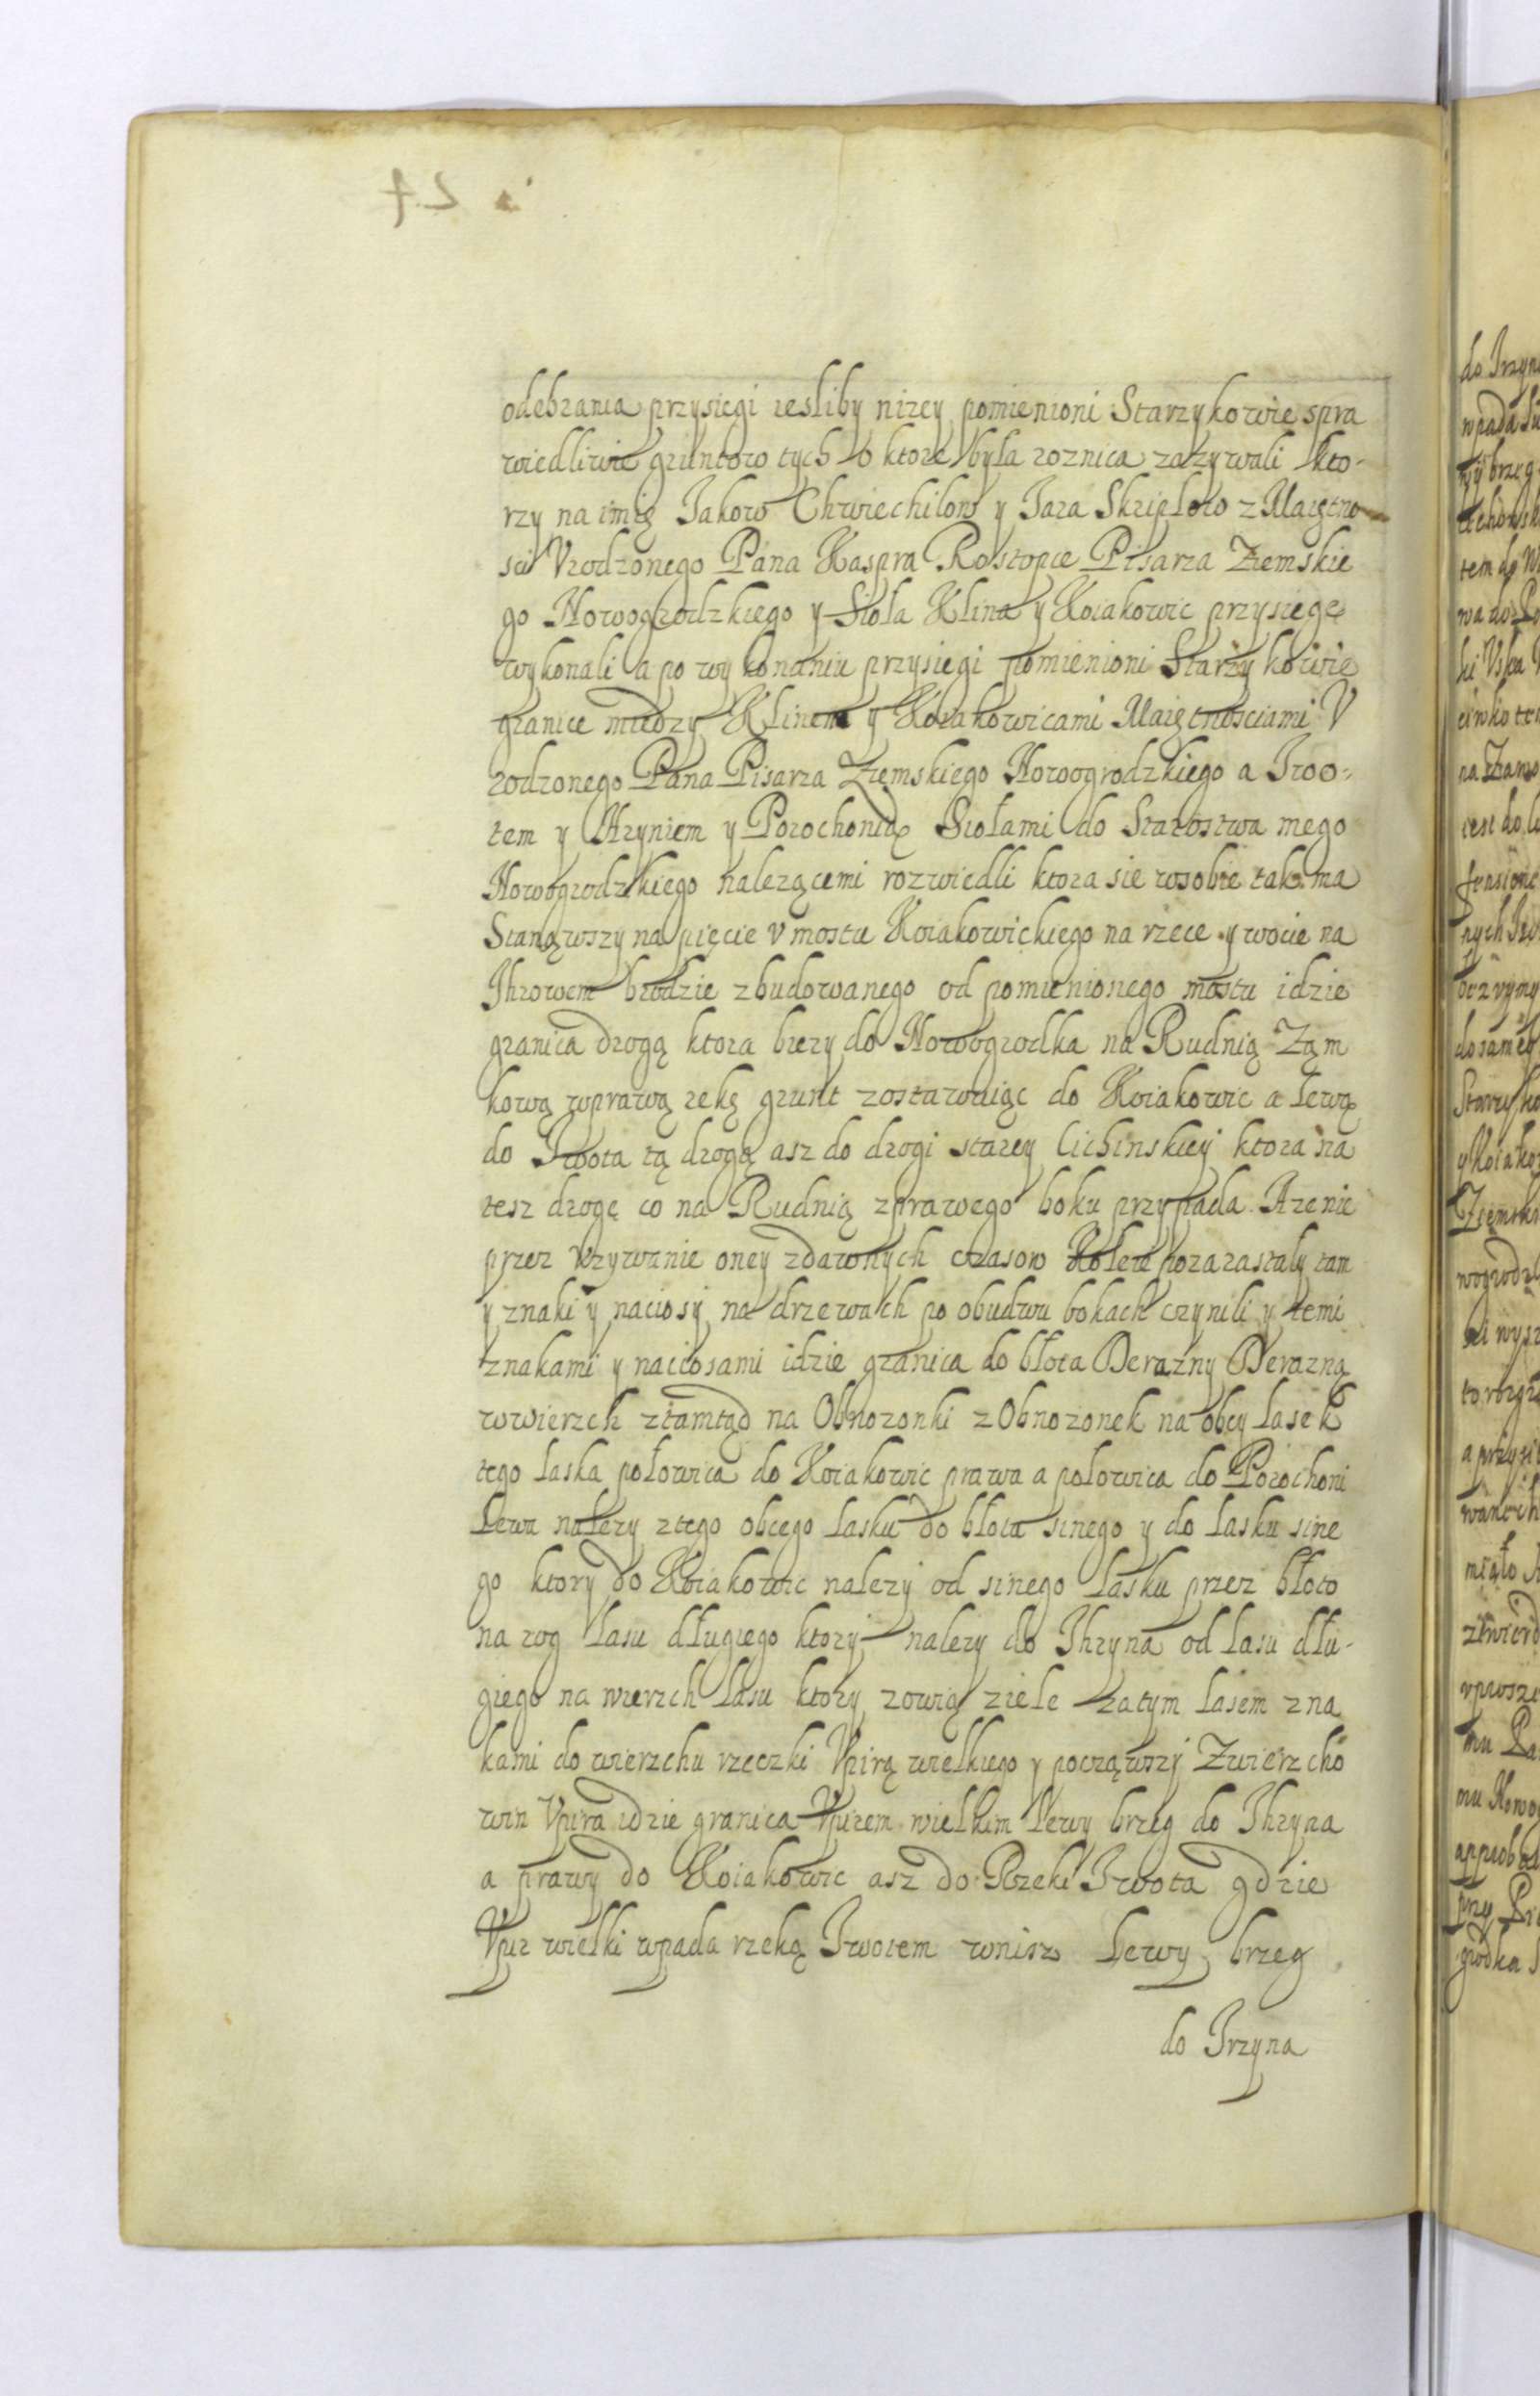 odebrania przysięgi iesliby nizey pomienioni Starzykowie spra
wiedliwie gruntow tych o ktore była roznica zazywali kto-
rzy na imię Iakow Chwiechilow y Iara Skriplow z Maiętno
sci Vrodzonego Pana Kaspra Rostopce Pisarza Ziemskie
go Nowogrodzkiego y Sioła Klina y Koiakowic przysięgę
wykonali a po wykonaniu przysięgi pomienioni Starzykowie
granice między Klinem y Koiakowicami Maiętnosciami V
rodzonego Pana Pisarza Ziemskiego Nowogrodzkiego a Iwo-
tem y Hryniem y Porochonią Siołami do Starostwa mego
Nowogrodzkiego nalezącemi rozwiedli ktora sie wsobie tak ma
Stanąwszy na pięcie v mostu Koiakowickiego na rzece ywocie na
Ihrowem brodzie zbudowanego od pomienionego mostu idzie
granica drogą ktora biezy do Nowogrodka na Rudnią Zam
kową wprawą rękę grunt zostawuiąc do Koiakowic a lewą
do Iwota tą drogą asz do drogi starey Cichinskiey ktora na
tesz drogę co na Rudnią zprawego boku przypada. A ze nie
przez Vzywanie oney zdawnych czasow pozarastały tam
y znaki y naciosy na drzewach po obudwu bokach czynili y temi
znakami y naciosami idzie granica do błota Derazny Derazną
wwierzch ztamtąd na Obnozonki z Obnozonek na obcy lasek
tego laska połowica do Koiakowic prawa a połowica do Porochoni
Lewa nalezy ztego obcego lasku do błota sinego y do lasku sine
go ktory do Koiakowic nalezy od sinego lasku przez błoto
na rog lasu długiego ktory nalezy do Ihryna od lasu dłu-
giego na wierzch lasu ktory zowią ziele zatym lasem zna
kami do wierzchu rzeczki Vpirą wielkiego y począwszy Zwierzcho
win Vpira idzie granica Vpirem wielkim lewy brzeg do Ihryna
a prawy do Koiakowic asz do Rzeki Iwota gdzie
Vpir wielki wpada rzeką Iwotem wnisz Lewy brzeg
do Irzyna